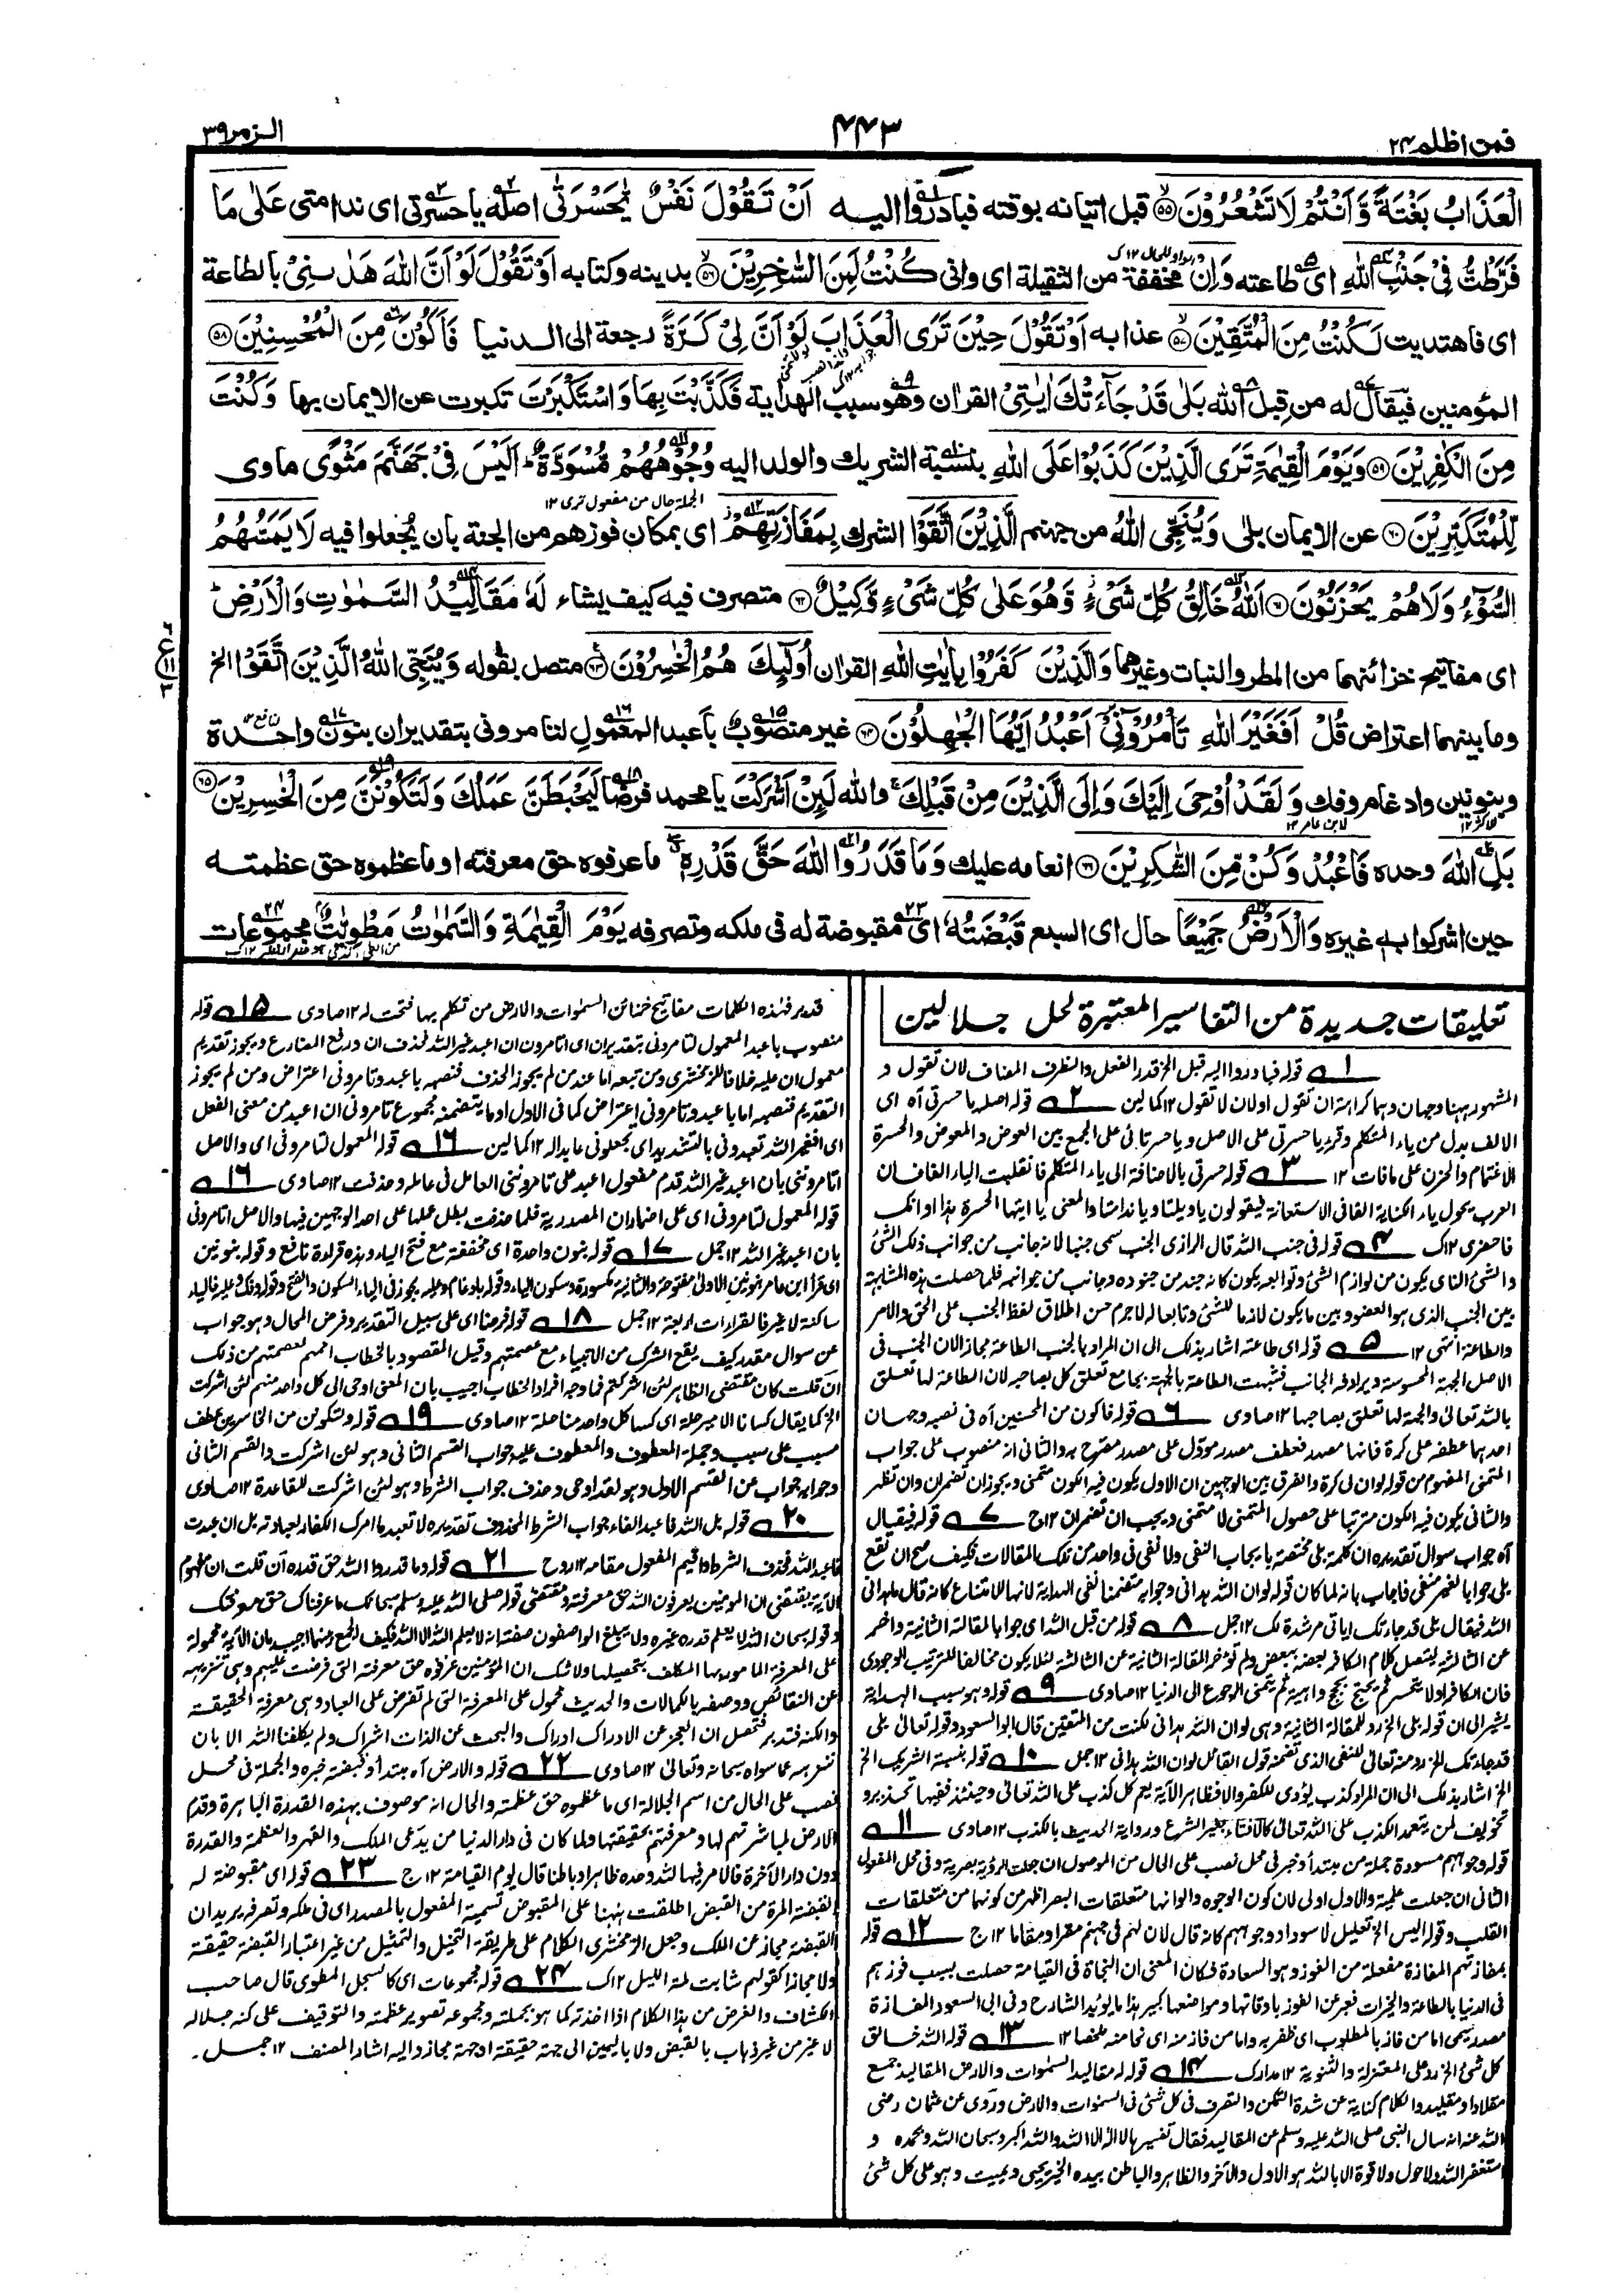 فمن اظلم ٢٤
٤٤٣
الزمر ٣٩
الْعَذَابُ بَغْتَةً وَّاَنْتُمْ لَا تَشْعُرُوْنَ ﴿٥٥﴾ قبل اتيانه بوقته فبادروا اليه اَنْ تَقُوْلَ نَفْسٌ يّٰحَسْرَتٰى اصله يا حسرتي اى ندامتى عَلٰى مَا
فَرَّطْتُّ فِيْ جَنْۢبِ اللّٰهِ اى طاعته وَاِنْ مخففة من الثقيلة اى وانى كُنْتُ لَمِنَ السّٰخِرِيْنَ ﴿٥٦﴾ بدينه وكتابه اَوْ تَقُوْلَ لَوْ اَنَّ اللّٰهَ هَدٰىنِيْ بالطاعة
اى فاهتديت لَكُنْتُ مِنَ الْمُتَّقِيْنَ ﴿٥٧﴾ عذابه اَوْ تَقُوْلَ حِيْنَ تَرَى الْعَذَابَ لَوْ اَنَّ لِيْ كَرَّةً رجعة الى الدنيا فَاَكُوْنَ مِنَ الْمُحْسِنِيْنَ ﴿٥٨﴾
المؤمنين فيقال له من قبل الله بَلٰى قَدْ جَآءَتْكَ اٰيٰتِيْ القران وهو سبب الهداية فَكَذَّبْتَ بِهَا وَاسْتَكْبَرْتَ تكبرت عن الايمان بها وَكُنْتَ
مِنَ الْكٰفِرِيْنَ ﴿٥٩﴾ وَيَوْمَ الْقِيٰمَةِ تَرَى الَّذِيْنَ كَذَبُوْا عَلَى اللّٰهِ بنسبة الشريك والولد اليه وُجُوْهُهُمْ مُّسْوَدَّةٌ ؕ اَلَيْسَ فِيْ جَهَنَّمَ مَثْوًى ماوى
الجملة حال من مفعول ترى ١٢
لِّلْمُتَكَبِّرِيْنَ ﴿٦٠﴾ عن الايمان بلى وَيُنَجِّى اللّٰهُ من جهنم الَّذِيْنَ اتَّقَوْا الشرك بِمَفَازَتِهِمْ اى بمكان فوزهم من الجنة بان يُجعلوا فيه لَا يَمَسُّهُمُ
السُّوْٓءُ وَلَا هُمْ يَحْزَنُوْنَ ﴿٦١﴾ اَللّٰهُ خَالِقُ كُلِّ شَيْءٍ وَّهُوَ عَلٰى كُلِّ شَيْءٍ وَّكِيْلٌ ﴿٦٢﴾ متصرف فيه كيف يشاء لَهٗ مَقَالِيْدُ السَّمٰوٰتِ وَالْاَرْضِ
اى مفاتيح خزائنهما من المطر والنبات وغيرهما وَالَّذِيْنَ كَفَرُوْا بِاٰيٰتِ اللّٰهِ القران اُولٰٓئِكَ هُمُ الْخٰسِرُوْنَ ﴿٦٣﴾ متصل بقوله وَيُنَجِّى اللّٰهُ الَّذِيْنَ اتَّقَوْا الخ
وما بينهما اعتراض قُلْ اَفَغَيْرَ اللّٰهِ تَاْمُرُوْٓنِّيْ اَعْبُدُ اَيُّهَا الْجٰهِلُوْنَ ﴿٦٤﴾ غير منصوب باعبد المعمول لتامرونى بتقدير ان بنون واحدة
وبنونين وادغام وفك وَلَقَدْ اُوْحِيَ اِلَيْكَ وَاِلَى الَّذِيْنَ مِنْ قَبْلِكَ والله لَئِنْ اَشْرَكْتَ يا محمد فرضا لَيَحْبَطَنَّ عَمَلُكَ وَلَتَكُوْنَنَّ مِنَ الْخٰسِرِيْنَ ﴿٦٥﴾
بَلِ اللّٰهَ وحده فَاعْبُدْ وَكُنْ مِّنَ الشّٰكِرِيْنَ ﴿٦٦﴾ انعامه عليك وَمَا قَدَرُوا اللّٰهَ حَقَّ قَدْرِهٖ ما عرفوه حق معرفته او ما عظموه حق عظمته
حين اشركوا به غيره وَالْاَرْضُ جَمِيْعًا حال اى السبع قَبْضَتُهٗ اى مقبوضة له فى ملكه وتصرفه يَوْمَ الْقِيٰمَةِ وَالسَّمٰوٰتُ مَطْوِيّٰتٌۢ مجموعات
تعليقات جديدة من التفاسير المعتبرة لحل جلالين
١ قوله فبادروا اليه قبل الخ قدر الفعل والظرف المضاف لان تقول و
المشهور ههنا وجهان وهما كراهة ان تقول او لان لا تقول ١٢ كمالين ٢ قوله اصله يا حسرتى اه اى
الالف بدل من ياء المتكلم وقرئ يا حسرتى على الاصل ويا حسرتاى على الجمع بين العوض والمعوض والحسرة
الاغتمام والحزن على ما فات ١٢ ٣ قوله حسرتى بالاضافة الى ياء المتكلم فانقلبت الياء الفا فان
العرب يحول ياء الكناية الفا فى الاستغاثة فيقولون يا ويلتا ويا ندامتا والمعنى يا ايتها الحسرة هذا اوانك
فاحضرى ١٢ ك ٤ قوله فى جنب الله قال الرازى الجنب سمى جنبا لانه جانب من جوانب ذلك الشئ
والشئ الذى يكون من لوازم الشئ وتوابعه يكون كانه جند من جنوده وجانب من جوانبه فلما حصلت هذه المشابهة
بين الجنب الذى هو العضو وبين ما يكون لازما للشئ وتابعا له لا جرم حسن اطلاق لفظ الجنب على الحق والامر
والطاعة انتهى ١٢ ٥ قوله اى طاعته اشار بذلك الى ان المراد بالجنب الطاعة مجازا لان الجنب فى
الاصل الجهة المحسوسة ويرادفه الجانب فشبهت الطاعة بالجهة بجامع تعلق كل بصاحبه لان الطاعة لها تعلق
بالله تعالى والجهة لها تعلق بصاحبها ١٢ صاوى ٦ قوله فاكون من المحسنين اه فى نصبه وجهان
احدهما عطفه على كرة فانها مصدر فعطف مصدر مؤول على مصدر مصرح به والثانى انه منصوب على جواب
التمنى المفهوم من قوله لو ان لى كرة والفرق بين الوجهين ان الاول يكون فيه الكون متمنى ويجوز ان تضمر ان وان تظهر
والثانى يكون فيه الكون مترتبا على حصول المتمنى لا متمنى ويجب ان تضمر ان ١٢ ج ٧ قوله فيقال
اه جواب سوال تقديره ان كلمة بلى مختصة بايجاب النفى ولا نفى فى واحد من تلك المقالات فكيف صح ان تقع
بلى جوابا لغير منفى فاجاب بانه لما كان قوله لو ان الله هدانى وجوابه متضمنا نفى الهداية لانها للامتناع كانه قال ما هدانى
الله فيقال بلى قد جاءتك اياتى مرشدة لك ١٢ جمل ٨ قوله من قبل الله اى جوابا لمقالة الثانية واخر
عن الثالثة ليتصل كلام الكافر بعضه ببعض ولم تؤخر المقالة الثانية عن الثالثة لئلا يكون مخالفا للترتيب الوجودى
فان الكافر اولا يتحسر ثم يحتج بحجج واهية ثم يتمنى الرجوع الى الدنيا ١٢ صاوى ٩ قوله وهو سبب الهداية
يشير الى ان قوله بلى الخ رد للمقالة الثانية وهى لو ان الله هدانى لكنت من المتقين قال ابو السعود وقوله تعالى بلى
قد جاءتك الخ رد منه تعالى للنفى الذى تضمنه قول القائل لو ان الله هدانى ١٢ جمل ١٠ قوله بنسبة الشريك الخ
الخ اشار بذلك الى ان المراد كذب يؤدى للكفر والا فظاهر الآية يعم كل كذب على الله تعالى وحينئذ ففيها تحذير و
تخويف لمن يتعمد الكذب على الله تعالى كالافتاء بغير الشرع ورواية الحديث بالكذب ١٢ صاوى ١١
قوله وجوههم مسودة جملة من مبتدأ وخبر فى محل نصب على الحال من الموصول ان جعلت الرؤية بصرية وفى محل المفعول
الثانى ان جعلت علمية والاول اولى لان كون الوجوه والوانها متعلقات البصر اظهر من كونها من متعلقات
القلب وقوله اليس الخ تعليل لاسوداد وجوههم كانه قال لان لهم فى جهنم مقرا ومقاما ١٢ ج ١٢ قوله
بمفازتهم المفازة مفعلة من الفوز وهو السعادة فكان المعنى ان النجاة فى القيامة حصلت بسبب فوزهم
فى الدنيا بالطاعة والخيرات فعبر عن الفوز باوقاتها ومواضعها كبير هذا ما يؤيد الشارح وفى ابى السعود المفازة
مصدر ميمى اما من فاز بالمطلوب اى ظفر به واما من فاز منه اى نجا منه ملخصا ١٢ ١٣ قوله الله خالق
كل شئ الخ رد على المعتزلة والثنوية ١٢ مدارك ١٤ قوله له مقاليد السموات والارض المقاليد جمع
مقلاد او مقليد والكلام كناية عن شدة التمكن والتصرف فى كل شئ فى السموات والارض وروى عن عثمان رضى
الله عنه انه سال النبى صلى الله عليه وسلم عن المقاليد فقال تفسيرها لا اله الا الله والله اكبر وسبحان الله وبحمده و
استغفر الله ولا حول ولا قوة الا بالله هو الاول والآخر والظاهر والباطن بيده الخير يحيى ويميت وهو على كل شئ
قدير فهذه الكلمات مفاتيح خزائن السموات والارض من تكلم بها فتحت له ١٢ صاوى ١٥ قوله
منصوب باعبد المعمول لتامرونى بتقدير ان اى اتامرون ان اعبد غير الله فحذف ان ورفع المضارع ويجوز تقديم
معمول ان عليه خلافا للزمخشرى ومن تبعه اما عند من لم يجوز الحذف فنصبه باعبد وتامرونى اعتراض ومن لم يجوز
التقديم فنصبه اما باعبد وتامرونى اعتراض كما فى الاول او بما يتضمنه مجموع تامرونى ان اعبد من معنى الفعل
اى افغير الله تعبدونى بالتشديد اى تجعلونى عابدا له ١٢ كمالين ١٦ قوله المعمول لتامرونى اى والاصل
اتامروننى بان اعبد غير الله قدم مفعول اعبد على تامروننى العامل فى عامله وحذفت ١٢ صاوى ١٦
قوله المعمول لتامرونى اى على اضمار ان المصدرية فلما حذفت بطل عملها على احد الوجهين فيها والاصل اتامرونى
بان اعبد غير الله ١٢ جمل ١٧ قوله بنون واحدة اى مخففة مع فتح الياء وهذه قراءة نافع وقوله بنونين
اى قرأ ابن عامر بنونين الاولى مفتوحة والثانية مكسورة وسكون الياء وقوله بادغام وعليه يجوز فى الياء السكون والفتح وقوله وفك عليه فالياء
ساكنة لا غير فالقراءات اربعة ١٢ جمل ١٨ قوله فرضا اى على سبيل التقدير وفرض المحال وهو جواب
عن سوال مقدر كيف يقع الشرك من الانبياء مع عصمتهم وقيل المقصود بالخطاب اممهم لعصمتهم من ذلك
ان قلت كان مقتضى الظاهر لئن اشركتم فما وجه افراد الخطاب اجيب بان المعنى اوحى الى كل واحد منهم لئن اشركت
الخ كما يقال كسانا الامير حلة اى كسا كل واحد منا حلة ١٢ صاوى ١٩ قوله ولتكونن من الخاسرين عطف
مسبب على سبب وجملة المعطوف والمعطوف عليه جواب القسم الثانى وهو لئن اشركت والقسم الثانى
وجوابه جواب عن القسم الاول وهو لقد اوحى وحذف جواب الشرط وهو لئن اشركت للقاعدة ١٢ صاوى
٢٠ قوله بل الله فاعبد الفاء جواب الشرط المحذوف تقديره لا تعبد ما امرك الكفار بعبادته بل ان عبدت
فاعبد الله فحذف الشرط واقيم المفعول مقامه ١٢ روح ٢١ قوله وما قدروا الله حق قدره ان قلت ان مفهوم
الآية يقتضى ان المومنين يعرفون الله حق معرفته ومقتضى قوله صلى الله عليه وسلم سبحانك ما عرفناك حق معرفتك
وقوله سبحان الله لا يعلم قدره غيره ولا يبلغ الواصفون صفته انه لا يعلم الله الا الله فكيف الجمع بينهما اجيب بان الآية محمولة
على المعرفة المامور بها المكلف بتحصيلها ولا شك ان المؤمنين عرفوه حق معرفته التى فرضت عليهم وهى تنزيهه
عن النقائص ووصفه بالكمالات والحديث محمول على المعرفة التى لم تفرض على العباد وهى معرفة الحقيقة
والكنه فتدبر فتحصل ان العجز عن الادراك ادراك والبحث عن الذات اشراك ولم يكلفنا الله الا بان
ننزهه عما سواه سبحانه وتعالى ١٢ صاوى ٢٢ قوله والارض اه مبتدأ وقبضته خبره والجملة فى محل
نصب على الحال من اسم الجلالة اى ما عظموه حق عظمته والحال انه موصوف بهذه القدرة الباهرة وقدم
الارض لمباشرتهم لها ومعرفتهم بحقيقتها ولما كان فى دار الدنيا من يدعى الملك والقهر والعظمة والقدرة
دون دار الآخرة فالامر فيها لله وحده ظاهرا وباطنا قال يوم القيامة ١٢ ج ٢٣ قوله اى مقبوضة له
القبضة المرة من القبض اطلقت ههنا على المقبوض تسمية المفعول بالمصدر اى فى ملكه وتصرفه يريد ان
القبضة مجاز عن الملك وجعل الزمخشرى الكلام على طريقة التخيل والتمثيل من غير اعتبار القبضة حقيقة
ولا مجازا كقولهم شابت لمة الليل ١٢ ك ٢٤ قوله مجموعات اى كالسجل المطوى قال صاحب
الكشاف والغرض من هذا الكلام اذا اخذته كما هو بجملته ومجموعه تصوير عظمته والتوقيف على كنه جلاله
لا غير من غير ذهاب بالقبض ولا باليمين الى جهة حقيقة او جهة مجاز واليه اشار المصنف ١٢ جمل -